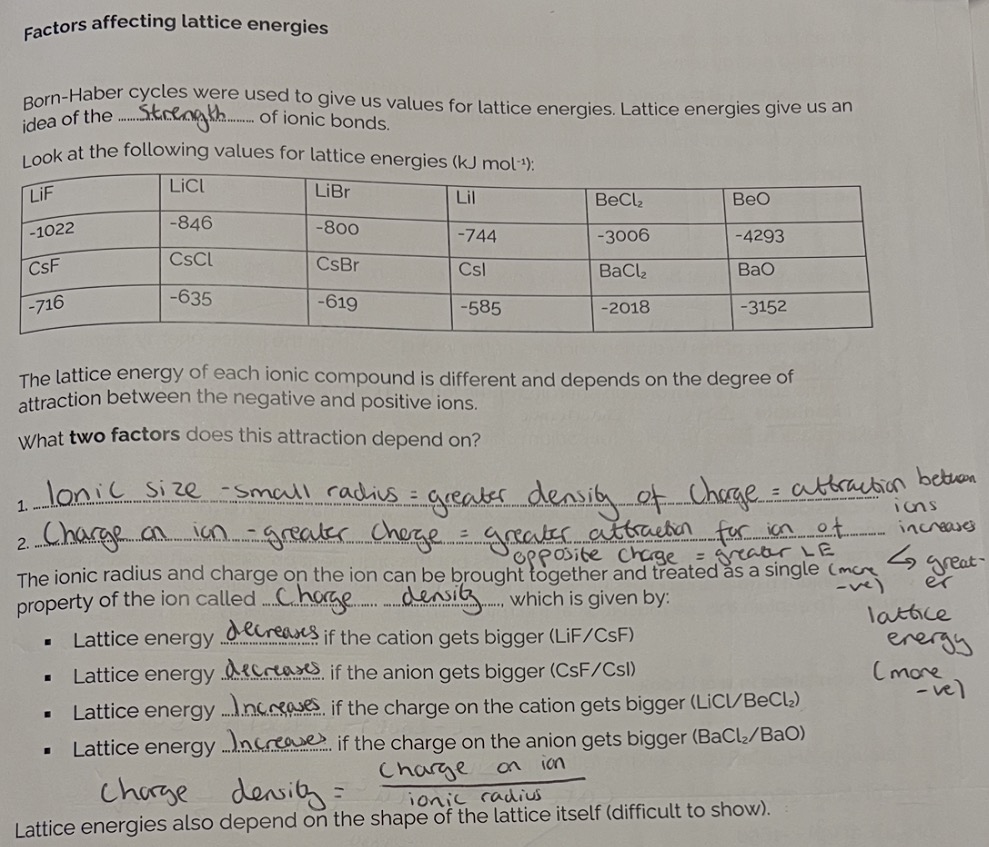 Factors affecting lattice energies
Born-Haber cycles were used to give us values for lattice energies. Lattice energies give us an
idea of the ....Strength.... of ionic bonds.
Look at the following values for lattice energies (kJ mol⁻¹):
LiF LiCl LiBr LiI BeCl₂ BeO
-1022 -846 -800 -744 -3006 -4293
CsF CsCl CsBr CsI BaCl₂ BaO
-716 -635 -619 -585 -2018 -3152
The lattice energy of each ionic compound is different and depends on the degree of
attraction between the negative and positive ions.
What two factors does this attraction depend on?
1. Ionic size - small radius = greater density of Charge = attraction between
ions
increases
↳ great-
er
lattice
energy
(more
-ve)
2. Charge on ion - greater Charge = greater attraction for ion of
opposite Charge = greater LE
(more
-ve)
The ionic radius and charge on the ion can be brought together and treated as a single
property of the ion called ....Charge.... ....density...., which is given by:
▪ Lattice energy decreases if the cation gets bigger (LiF/CsF)
▪ Lattice energy decreases if the anion gets bigger (CsF/CsI)
▪ Lattice energy Increases if the charge on the cation gets bigger (LiCl/BeCl₂)
▪ Lattice energy Increases if the charge on the anion gets bigger (BaCl₂/BaO)
Charge density = Charge on ion
ionic radius
Lattice energies also depend on the shape of the lattice itself (difficult to show).